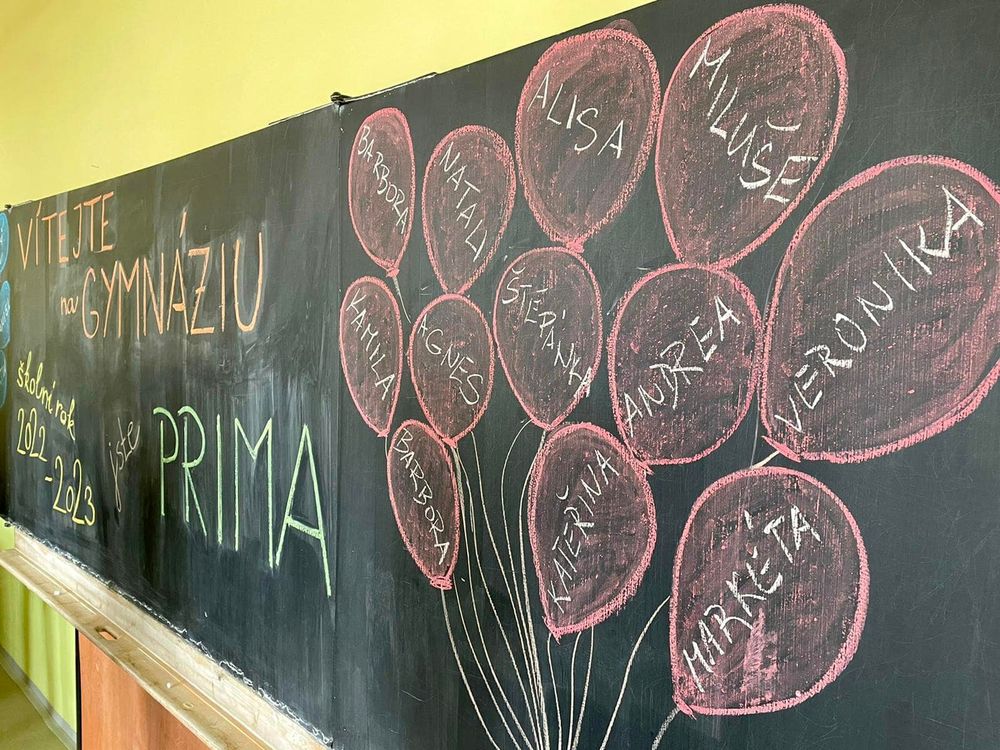 VÍTEJTE
na GYMNÁZIU
školní rok
2022
-2023
jste PRIMA
BARBORA
NATALI
ALISA
MILUŠE
KAMILA
AGNES
ŠTĚPÁNKA
ANDREA
VERONIKA
BARBORA
KATEŘINA
MARKÉTA